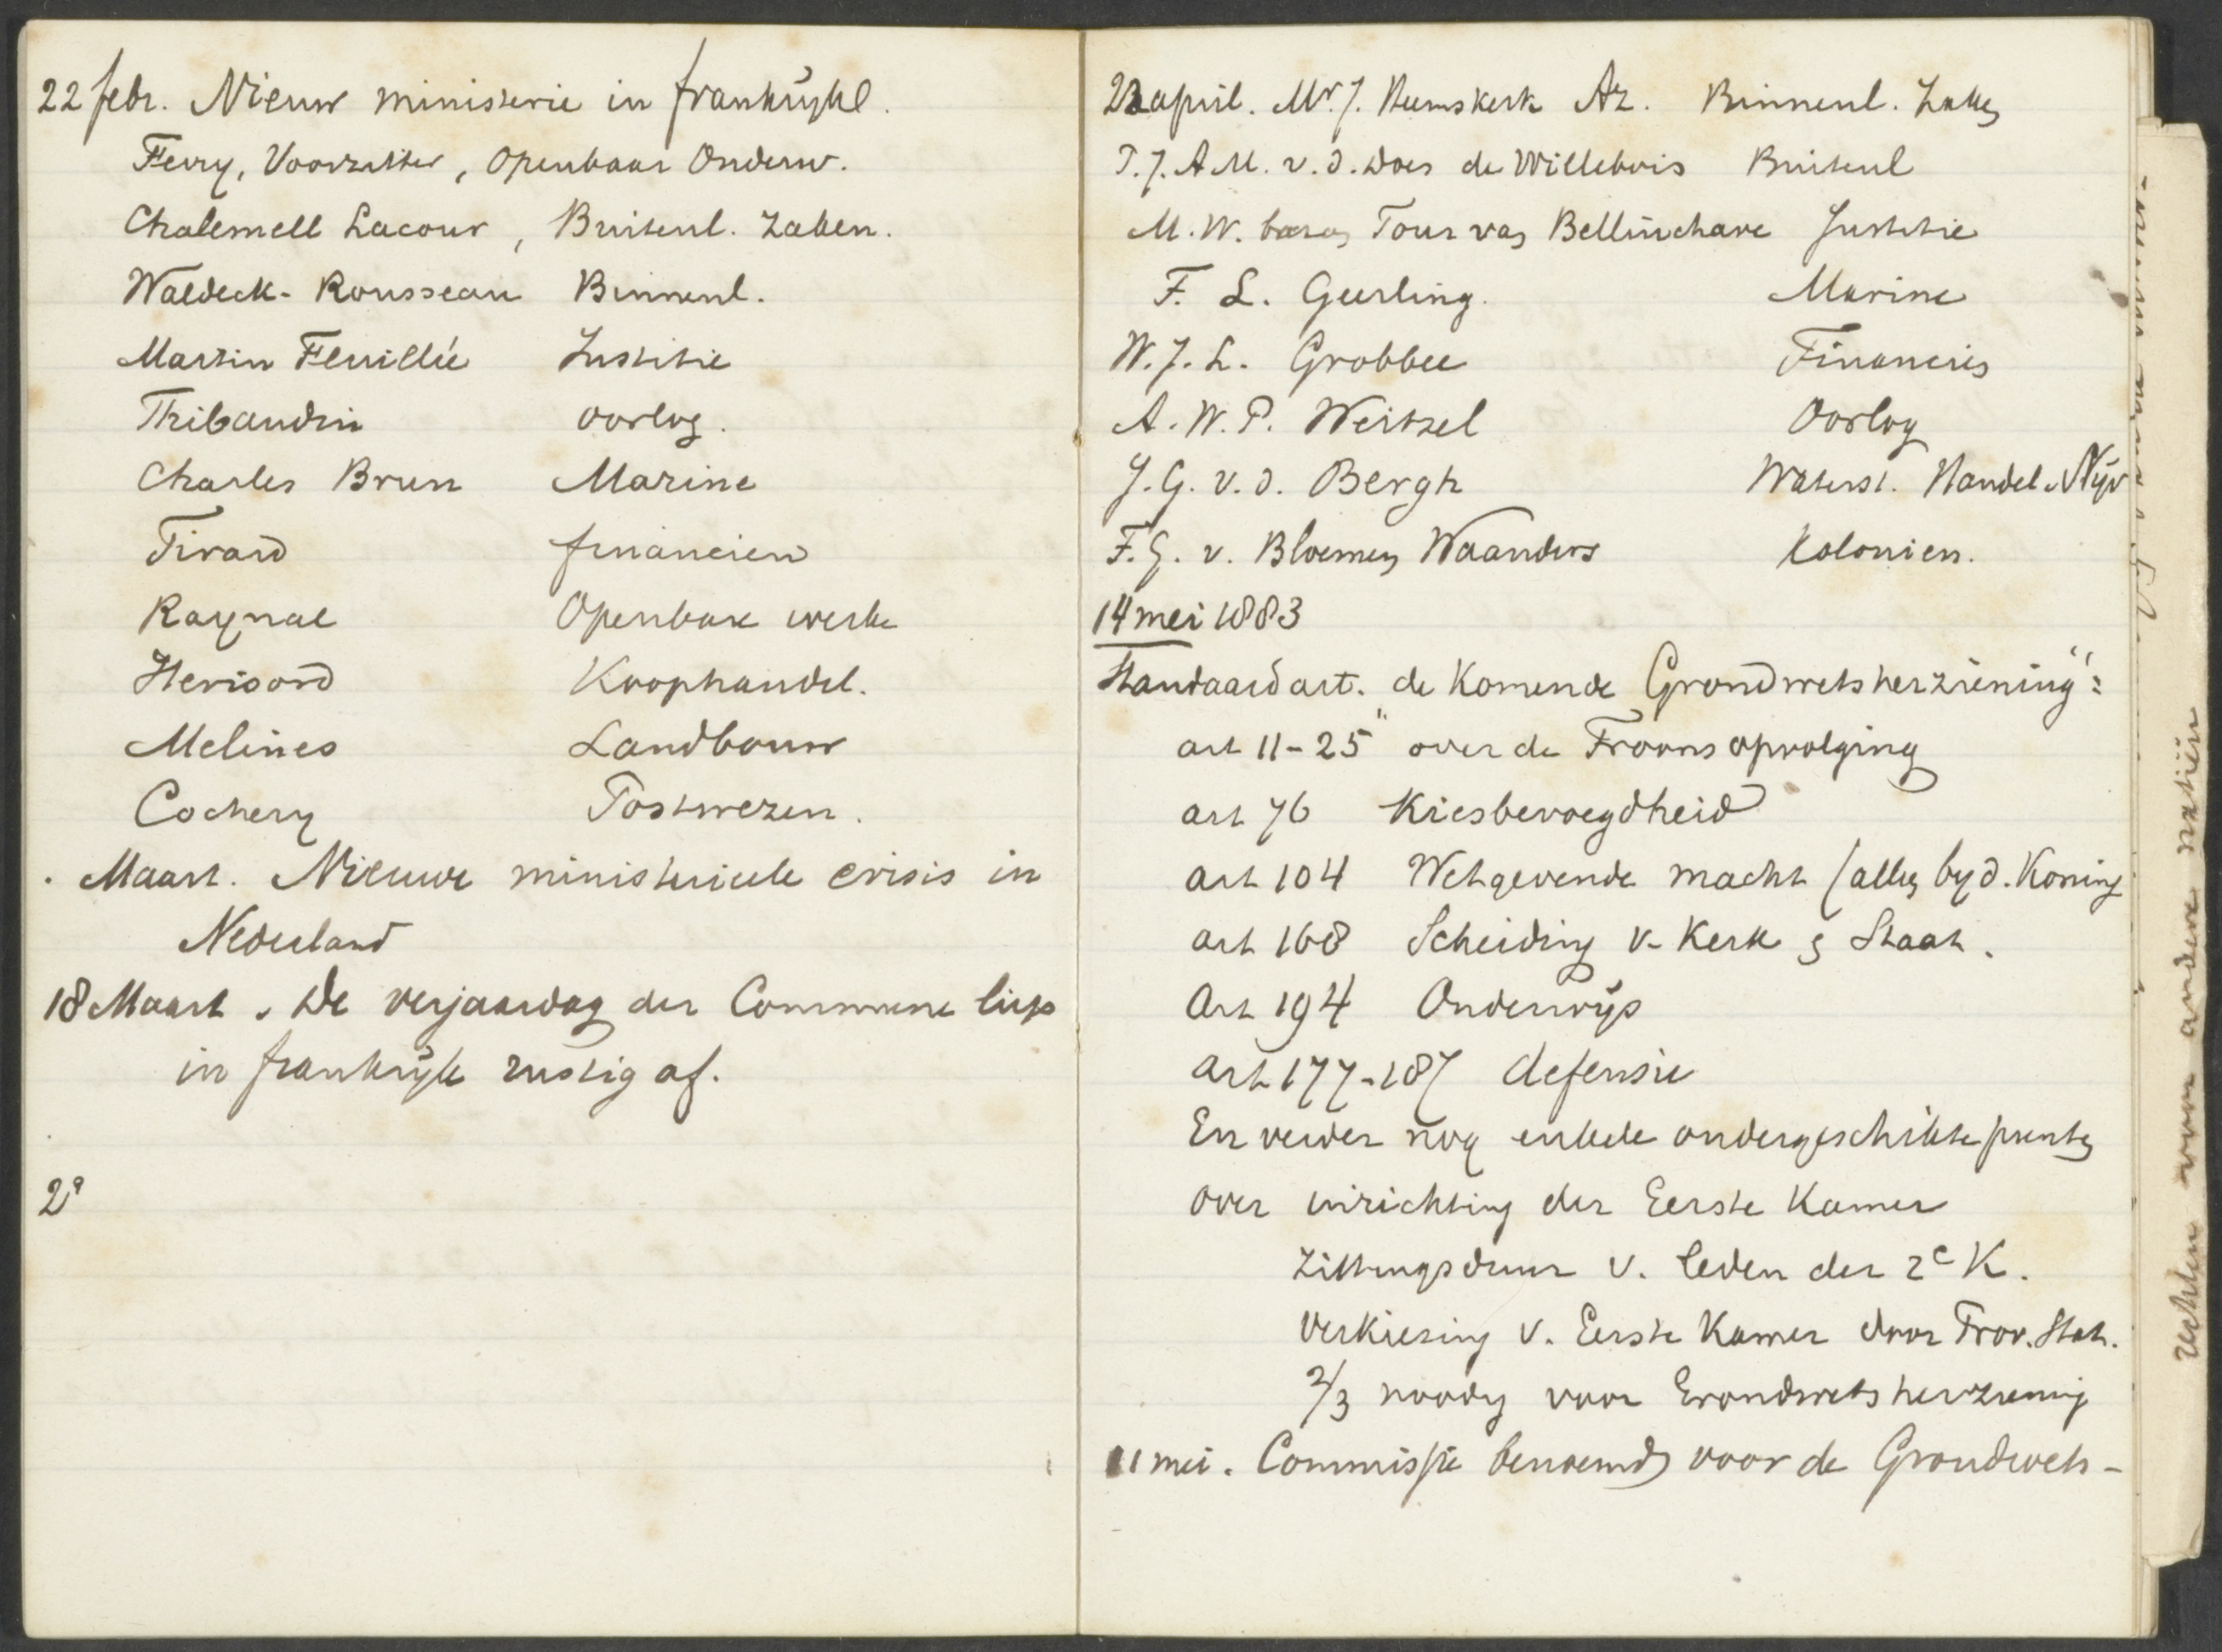 22 febr. Nieuw ministerie in frankrijk.
Ferry, Voorzitter, Openbaar Onderw.
Chalemell Lacour, Buitenl. Zaken.
Waldeck-Rousseau Binnenl.
Martin Feuillée Justitie
Thibaudin oorlog.
Charles Brun Marine
Tirard financien
Raynal Openbare werke
Herisord Koophandel.
Melines Landbouw
Cochery Postwezen.
. Maart. Nieuwe ministerieele crisis in
Nederland
18 Maart. De verjaardag der Commune liep
in frankrijk rustig af.
2e
22 april. Mr. J. Heemskerk Az. Binnenl. Zaken
P.J.A.M. v.d. Does de Willebois Buitenl
M.W. baron Tour van Bellinchave Justitie
F. L. Geerling. Marine
W.J.L. Grobbee Financiës
A.W.P. Weitzel Oorlog
J.G. v.d. Bergh Waterst. Handel Nijv
F.G. v. Bloemen Waanders Kolonien.
14 mei 1883
Standaard art. de Komende Grondwetsherziening":
art 11-25 " over de Troonsopvolging
art 76 Kiesbevoegdheid
art 104 Wetgevende macht (alleen by d. Koning
art 168 Scheiding v. Kerk & Staat.
Art 194 Onderwijs
art 177-187 defensie
En verder nog enkele ondergeschikte punten
over inrichting der Eerste Kamer
Zittingsduur v. leden der 2e K.
Verkiezing v. Eerste Kamer door Prov. Stat.
2/3 noodig voor Grondwetsherziening
11 mei. Commissie benoemd voor de Grondwets-
voor andere natiën